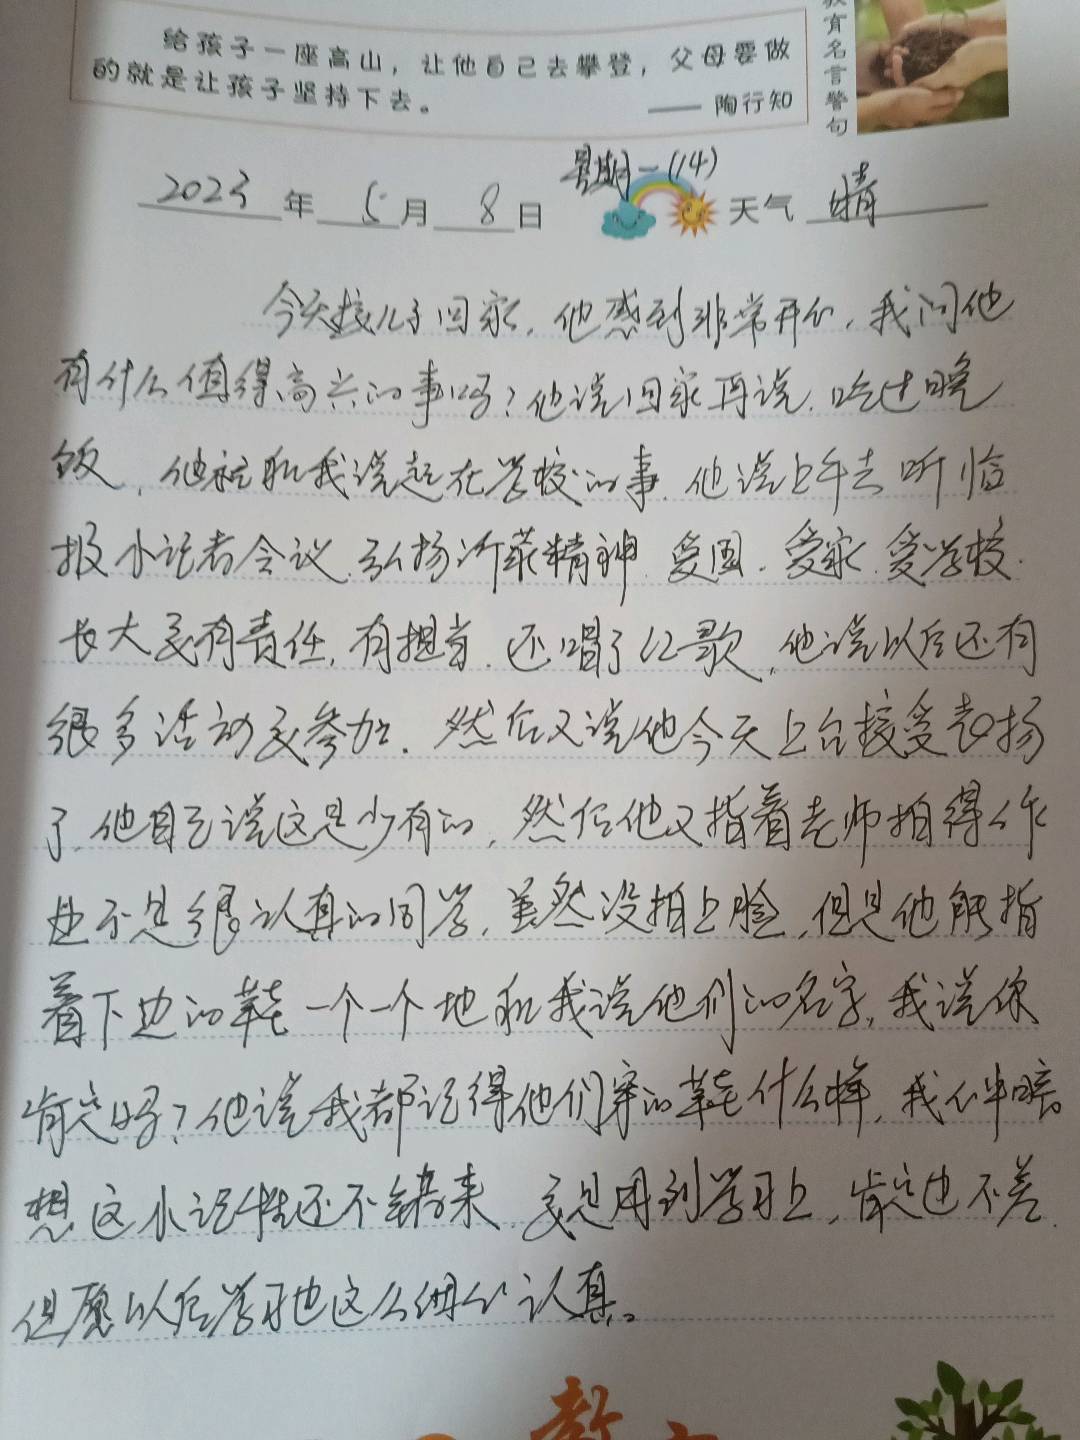 给孩子一座高山，让他自己去攀登，父母要做
的就是让孩子坚持下去。
—— 陶行知
教育名言警句
星期一(14)
2023年5月8日 天气 晴
今天接儿子回家，他感到非常开心，我问他
有什么值得高兴的事吗？他说回家再说，吃过晚
饭，他就和我说起在学校的事，他说上午去听临
报小记者会议，弘扬沂蒙精神，爱国、爱家、爱学校，
长大要有责任，有担当，还唱了红歌，他说以后还有
很多活动要参加，然后又说他今天上台接受表扬
了，他自己说这是少有的，然后他又指着老师拍得作
业不是很认真的同学，虽然没拍上脸，但是他能指
着下边的鞋一个一个地和我说他们的名字，我说你
肯定吗？他说我都记得他们穿的鞋什么样，我心半暗
想这小记性还不错来，要是用到学习上，肯定也不差，
但愿以后学习也这么细心认真。
教